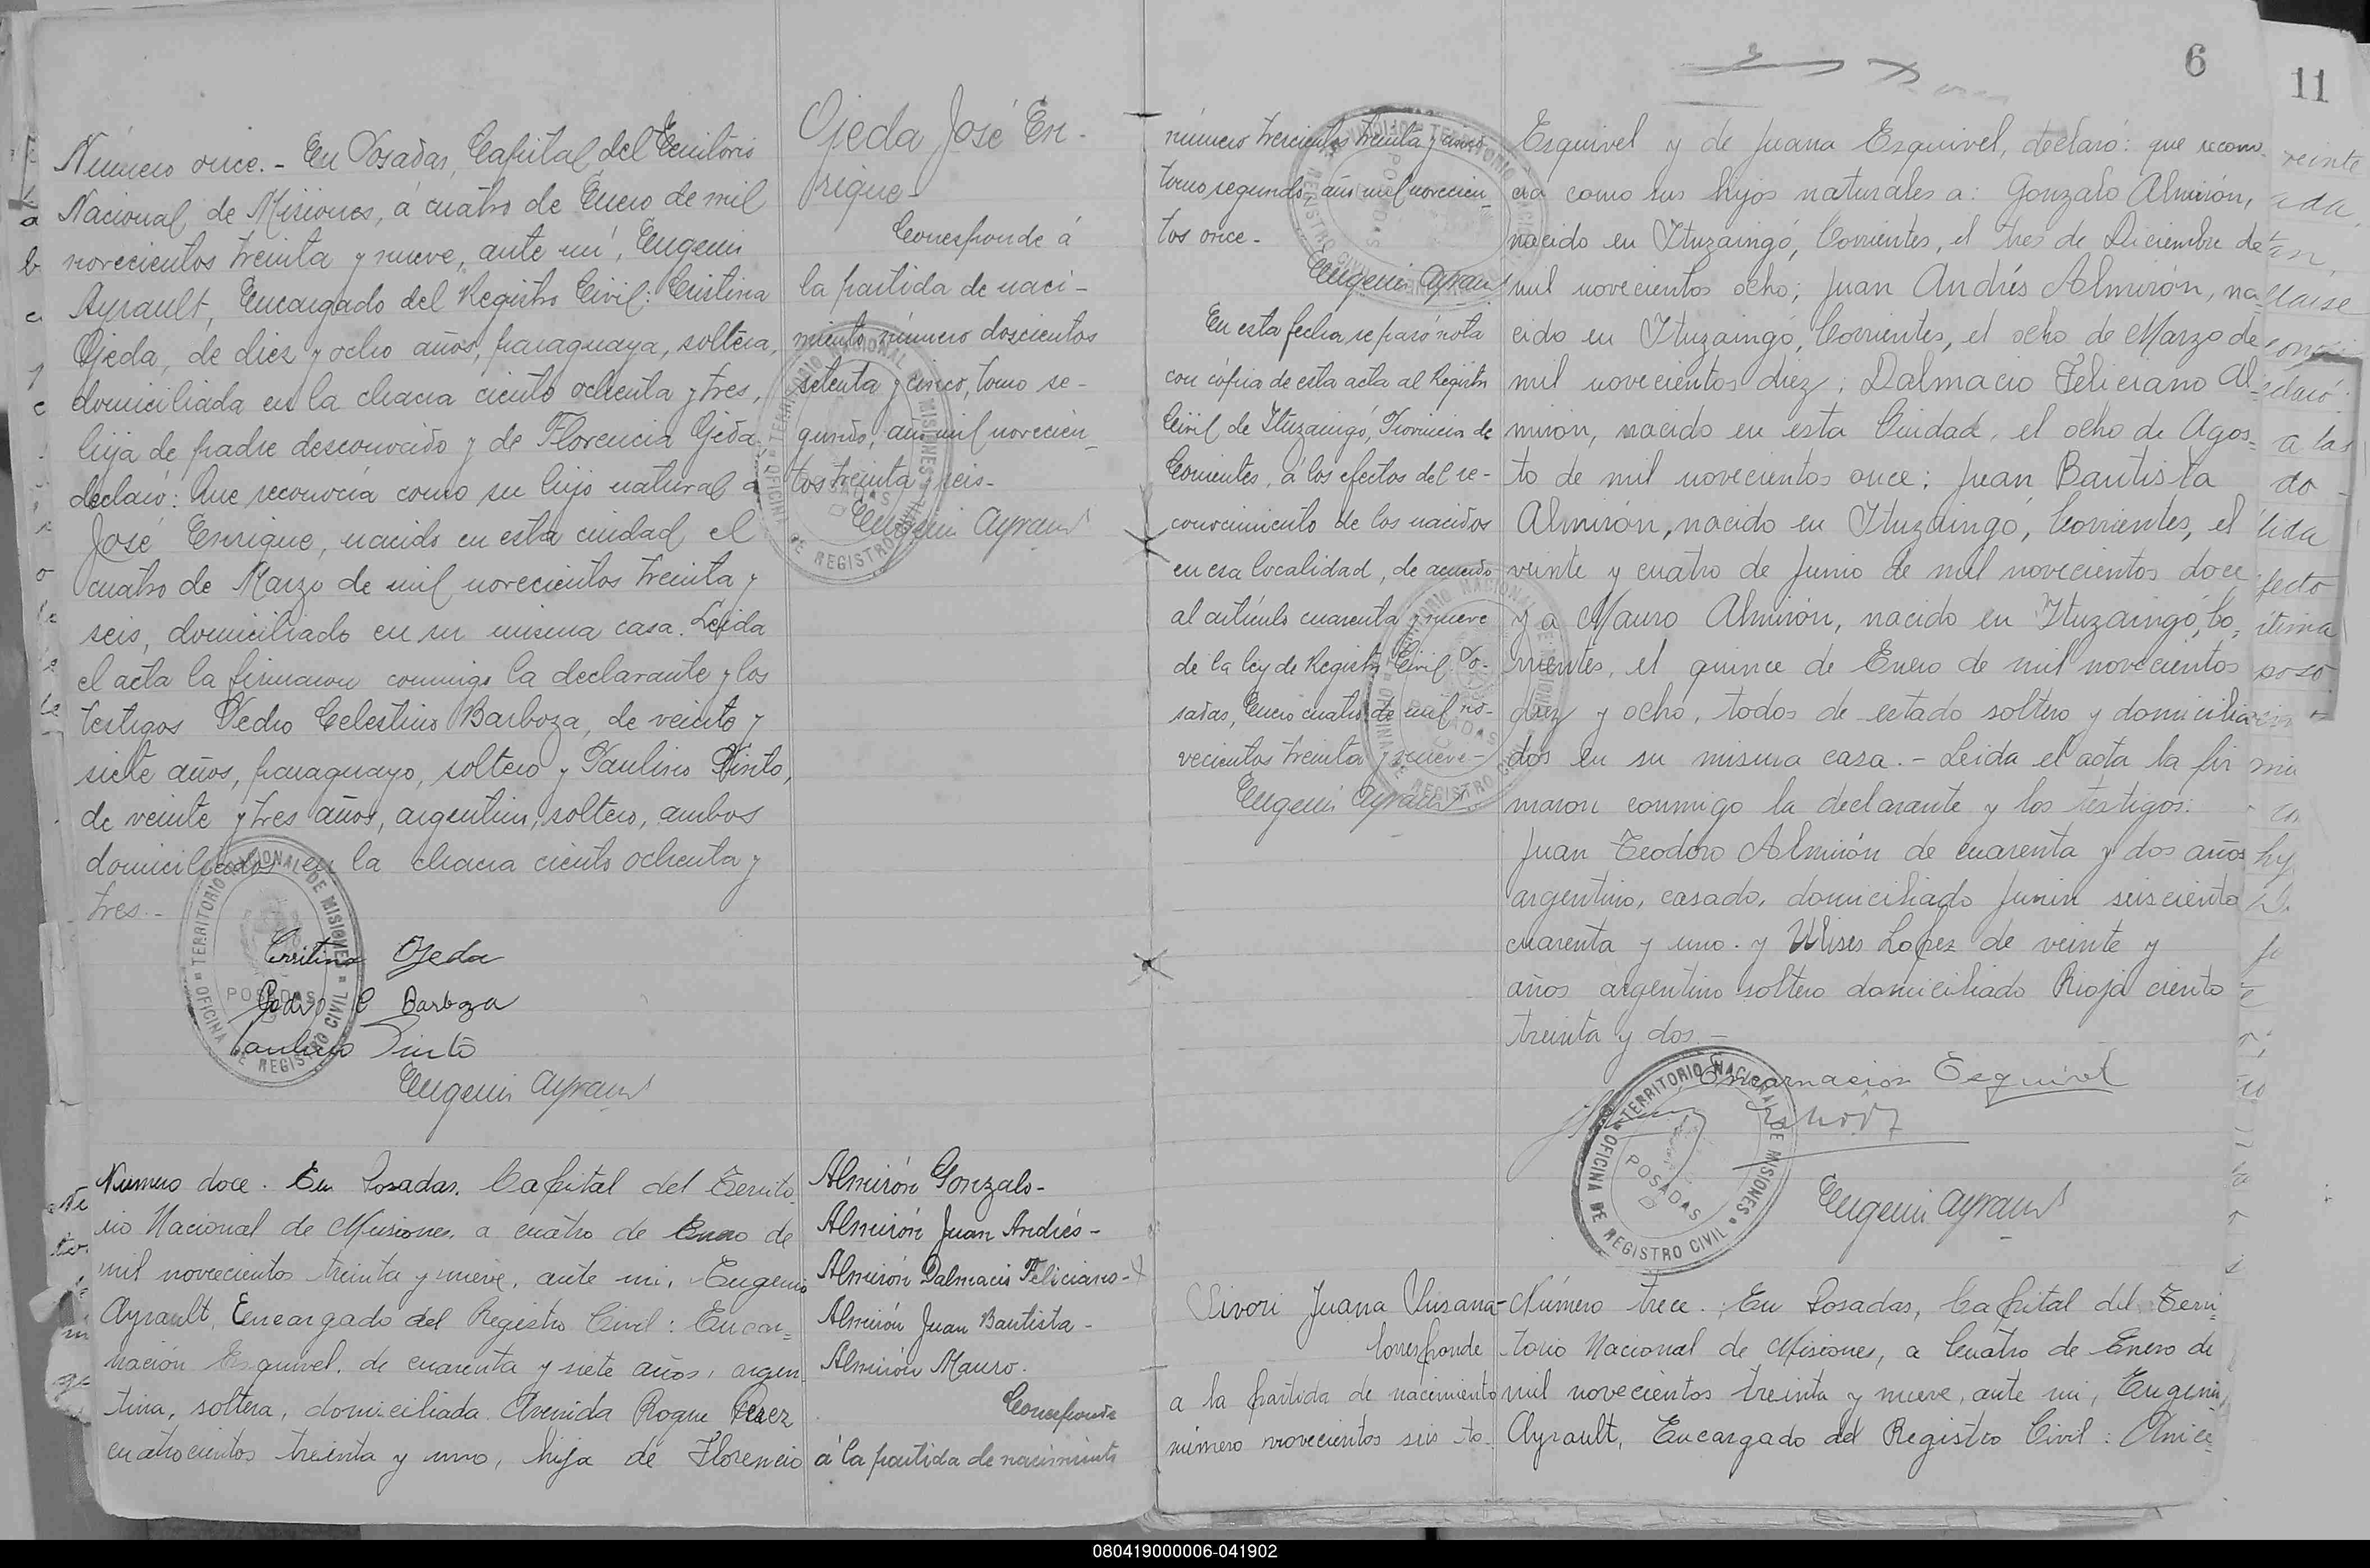 Número once. - En Posadas, Capital del Territorio
Nacional de Misiones, á cuatro de Enero de mil
novecientos treinta y nueve, ante mí, Eugenio
Ayrault, Encargado del Registro Civil: Cristina
Ojeda, de diez y ocho años, paraguaya, soltera,
domiciliada en la chacra ciento ochenta y tres,
hija de padre desconocido y de Florencia Ojeda,
declaró: Que reconocía como su hijo natural a
José Enrique, nacido en esta ciudad el
cuatro de Marzo de mil novecientos treinta y
seis, domiciliado en su misma casa. Leída
el acta la firmaron conmigo la declarante y los
testigos Pedro Celestino Barboza, de veinte y
siete años, paraguayo, soltero y Paulino Pinto,
de veinte y tres años, argentino, soltero, ambos
domiciliados en la chacra ciento ochenta y
tres.-
Cristina Ojeda
Pedro C Barboza
Paulino Pinto
Eugenio Ayrault
TERRITORIO NACIONAL DE MISIONES
OFICINA DE REGISTRO CIVIL
POSADAS
Ojeda José En-
rique-
Corresponde á
la partida de naci-
miento número doscientos
setenta y cinco, tomo se-
gundo, año mil novecien-
tos treinta y seis-
Eugenio Ayrault
TERRITORIO NACIONAL DE MISIONES
OFICINA DE REGISTRO CIVIL
POSADAS
Número doce. En Posadas, Capital del Territo-
rio Nacional de Misiones, a cuatro de Enero de
mil novecientos treinta y nueve, ante mi, Eugenio
Ayrault, Encargado del Registro Civil: Encar=
nación Esquivel, de cuarenta y siete años, argen
tina, soltera, domiciliada Avenida Roque Perez
cuatrocientos treinta y uno, hija de Florencio
Almirón Gonzalo-
Almirón Juan Andrés-
Almirón Dalmacio Feliciano-
Almirón Juan Bautista-
Almirón Mauro.
Corresponde
á la partida de nacimiento
número trescientos treinta y cinco
tomo segundo, año mil novecien-
tos once-
Eugenio Ayrault
En esta fecha, se pasó nota
con cópia de esta acta al Registro
Civil de Ituzaingó, Provincia de
Corrientes, á los efectos del re-
conocimiento de los nacidos
en esa localidad, de acuerdo
al artículo cuarenta y nueve
de la ley de Registro Civil. Po-
sadas, Enero cuatro de mil no-
vecientos treinta y nueve-
Eugenio Ayrault
TERRITORIO NACIONAL DE MISIONES
OFICINA DE REGISTRO CIVIL
POSADAS
6
11
Esquivel y de Juana Esquivel, declaró: que recono-
cía como sus hijos naturales a: Gonzalo Almirón,
nacido en Ituzaingó, Corrientes, el tres de Diciembre de
mil novecientos ocho; Juan Andrés Almirón, na-
cido en Ituzaingó, Corrientes, el ocho de Marzo de
mil novecientos diez; Dalmacio Feliciano Al-
mirón, nacido en esta Ciudad, el ocho de Agos=
to de mil novecientos once; Juan Bautista
Almirón, nacido en Ituzaingó, Corrientes, el
veinte y cuatro de Junio de mil novecientos doce
y a Mauro Almirón, nacido en Ituzaingó, Co=
rrientes, el quince de Enero de mil novecientos
diez y ocho, todos de estado soltero y domicilia
dos en su misma casa.- Leida el acta la fir
maron conmigo la declarante y los testigos:
Juan Teodoro Almirón de cuarenta y dos años
argentino, casado, domiciliado Junin seiscientos
cuarenta y uno. y Ulises Lopez de veinte y
años argentino soltero domiciliado Rioja ciento
treinta y dos.-
Encarnacion Esquivel
Eugenio Ayrault
TERRITORIO NACIONAL DE MISIONES
OFICINA DE REGISTRO CIVIL
POSADAS
Sivori Juana Susana-
Corresponde
a la partida de nacimiento
número novecientos seis to-
Número trece. En Posadas, Capital del Terri-
torio Nacional de Misiones, a Cuatro de Enero de
mil novecientos treinta y nueve, ante mi, Eugenio
Ayrault, Encargado del Registro Civil: Anice-
080419000006-041902